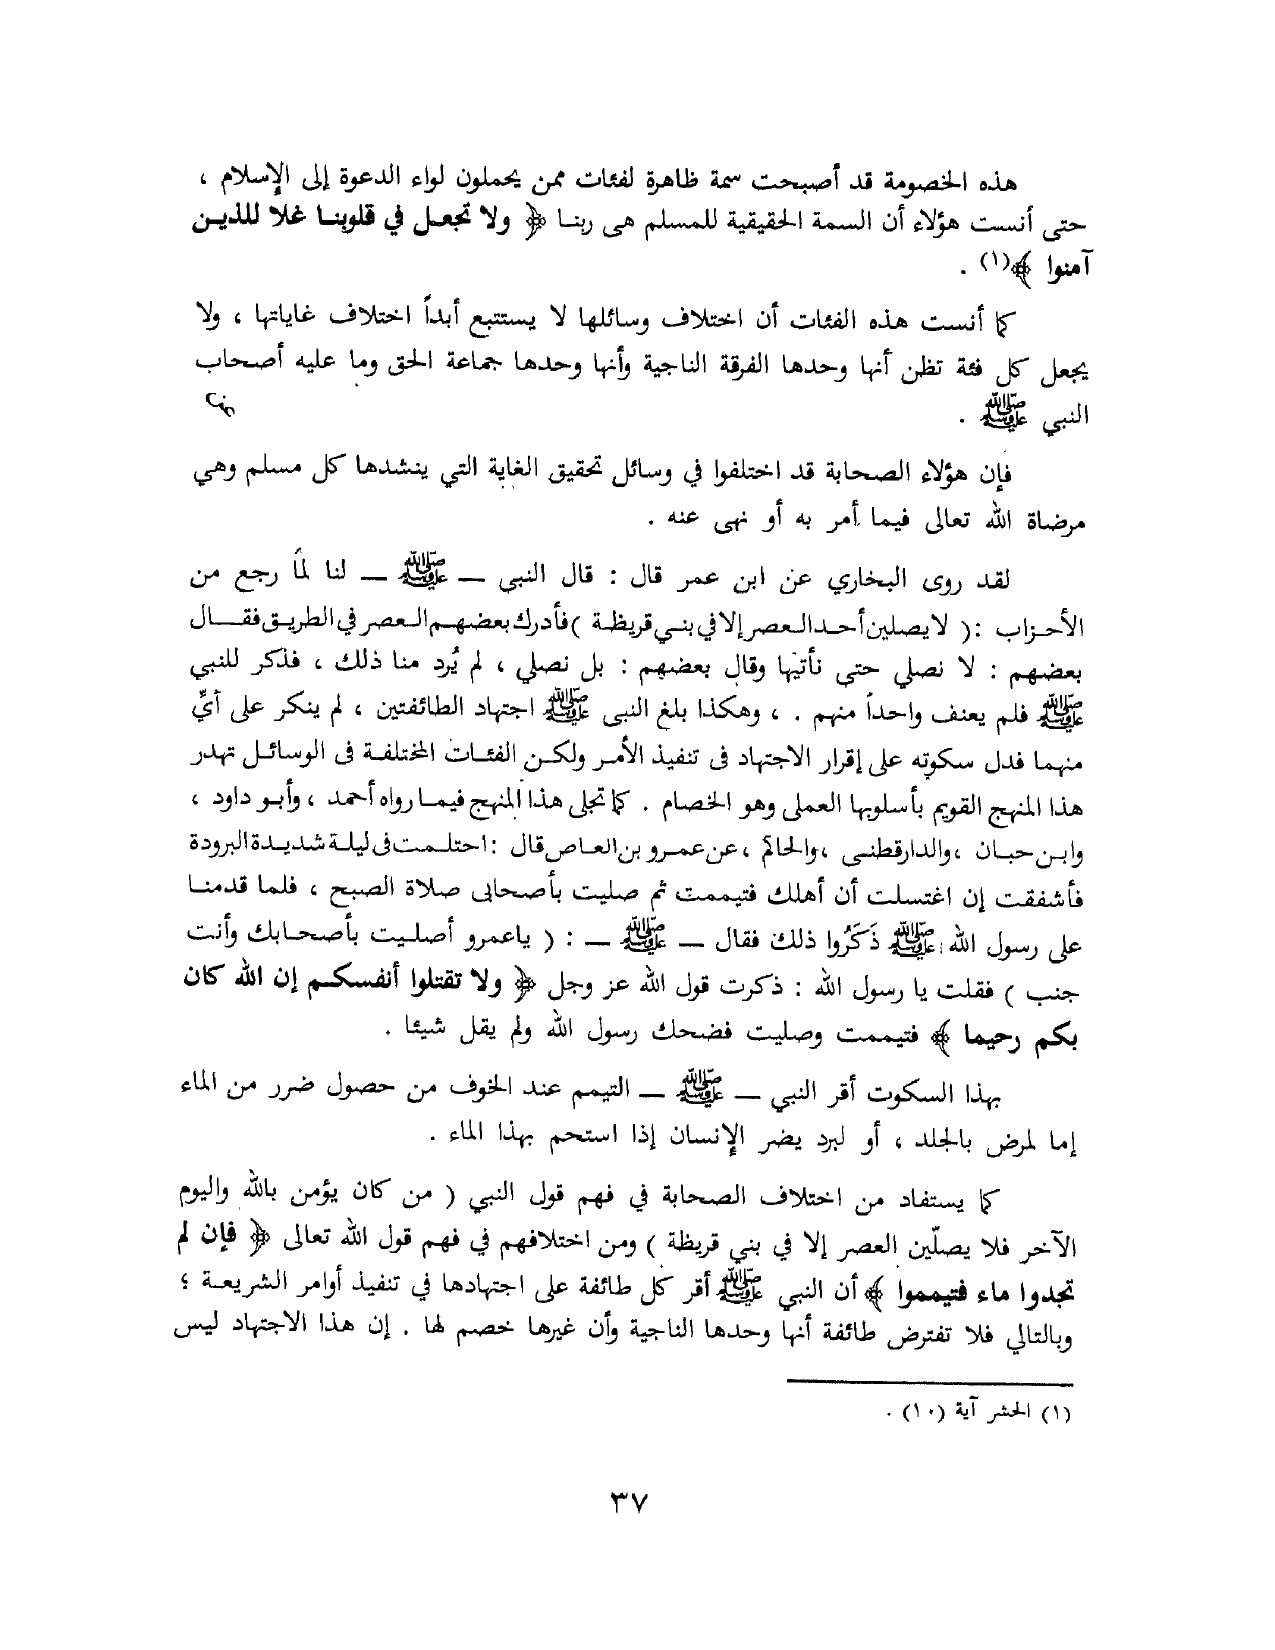 هذه الخصومة قد أصبحت سمة ظاهرة لفئات ممن يحملون لواء الدعوة إلى الإسلام ،
حتى أنست هؤلاء أن السمة الحقيقية للمسلم هى ربنا ﴿ ولا تجعل في قلوبنا غلا للذين
آمنوا ﴾(١) .
كما أنست هذه الفئات أن اختلاف وسائلها لا يستتبع أبداً اختلاف غاياتها ، ولا
يجعل كل فئة تظن أنها وحدها الفرقة الناجية وأنها وحدها جماعة الحق وما عليه أصحاب
النبي ﷺ .
فإن هؤلاء الصحابة قد اختلفوا في وسائل تحقيق الغاية التي ينشدها كل مسلم وهي
مرضاة الله تعالى فيما أمر به أو نهى عنه .
لقد روى البخاري عن ابن عمر قال : قال النبي ـ ﷺ ـ لنا لمَّا رجع من
الأحزاب :( لا يصلين أحد العصر إلا في بني قريظة ) فأدرك بعضهم العصر في الطريق فقال
بعضهم : لا نصلي حتى نأتيها وقال بعضهم : بل نصلي ، لم يُرد منا ذلك ، فذكر للنبي
ﷺ فلم يعنف واحداً منهم . ، وهكذا بلغ النبى ﷺ اجتهاد الطائفتين ، لم ينكر على أيٍّ
منهما فدل سكوته على إقرار الاجتهاد فى تنفيذ الأمر ولكن الفئات المختلفة فى الوسائل تهدر
هذا المنهج القويم بأسلوبها العملى وهو الخصام . كما تجلى هذا المنهج فيما رواه أحمد ، وأبو داود ،
وابن حبان ، والدارقطنى ، والحاكم ، عن عمرو بن العاص قال : احتلمت فى ليلة شديدة البرودة
فأشفقت إن اغتسلت أن أهلك فتيممت ثم صليت بأصحابى صلاة الصبح ، فلما قدمنا
على رسول الله ﷺ ذَكَرُوا ذلك فقال ـ ﷺ ـ : ( ياعمرو أصليت بأصحابك وأنت
جنب ) فقلت يا رسول الله : ذكرت قول الله عز وجل ﴿ ولا تقتلوا أنفسكم إن الله كان
بكم رحيما ﴾ فتيممت وصليت فضحك رسول الله ولم يقل شيئا .
بهذا السكوت أقر النبي ـ ﷺ ـ التيمم عند الخوف من حصول ضرر من الماء
إما لمرض بالجلد ، أو لبرد يضر الإنسان إذا استحم بهذا الماء .
كما يستفاد من اختلاف الصحابة في فهم قول النبي ( من كان يؤمن بالله واليوم
الآخر فلا يصلّين العصر إلا في بني قريظة ) ومن اختلافهم في فهم قول الله تعالى ﴿ فإن لم
تجدوا ماء فتيمموا ﴾ أن النبي ﷺ أقر كل طائفة على اجتهادها في تنفيذ أوامر الشريعة ؛
وبالتالي فلا تفترض طائفة أنها وحدها الناجية وأن غيرها خصم لها . إن هذا الاجتهاد ليس
(١) الحشر آية (١٠) .
٣٧